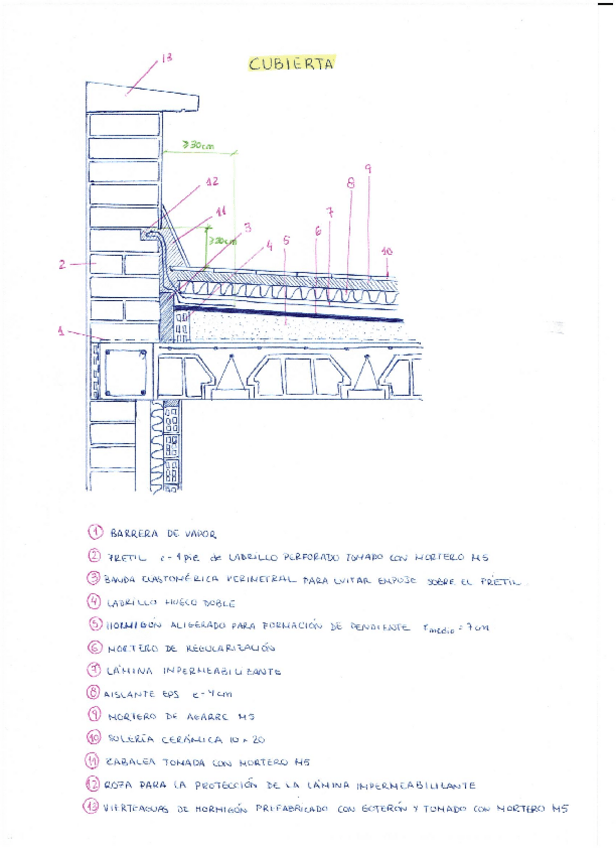 CUBIERTA
13
≥30cm
9
8
12
11
7
3
6
5
4
≥20cm
10
2
1
1 BARRERA DE VAPOR
2 PRETIL e=1 pie de LADRILLO PERFORADO TOMADO CON MORTERO M5
3 BANDA ELASTOMÉRICA PERIMETRAL PARA EVITAR EMPUJE SOBRE EL PRETIL.
4 LADRILLO HUECO DOBLE
5 HORMIGÓN ALIGERADO PARA FORMACIÓN DE PENDIENTE medio = 7cm
6 MORTERO DE REGULARIZACIÓN
7 LÁMINA IMPERMEABILIZANTE
8 AISLANTE EPS e=4cm
9 MORTERO DE AGARRE M5
10 SOLERÍA CERÁMICA 10 x 20
11 ZABALEA TOMADA CON MORTERO M5
12 ROZA PARA LA PROTECCIÓN DE LA LÁMINA IMPERMEABILILANTE
13 VIERTEAGUAS DE HORMIGÓN PREFABRICADO CON GOTERÓN Y TOMADO CON MORTERO M5